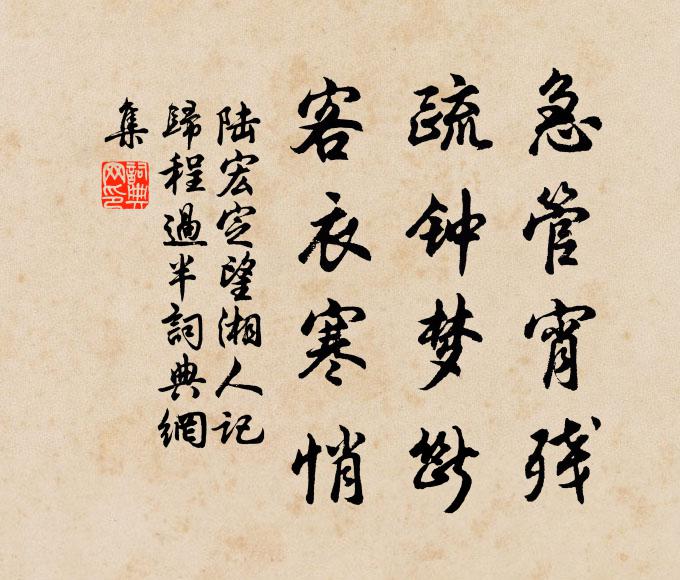 急管宵残
疏钟梦断
客衣寒悄
陆宏定望湘人记
歸程過半詞典網
集
詞典
网印